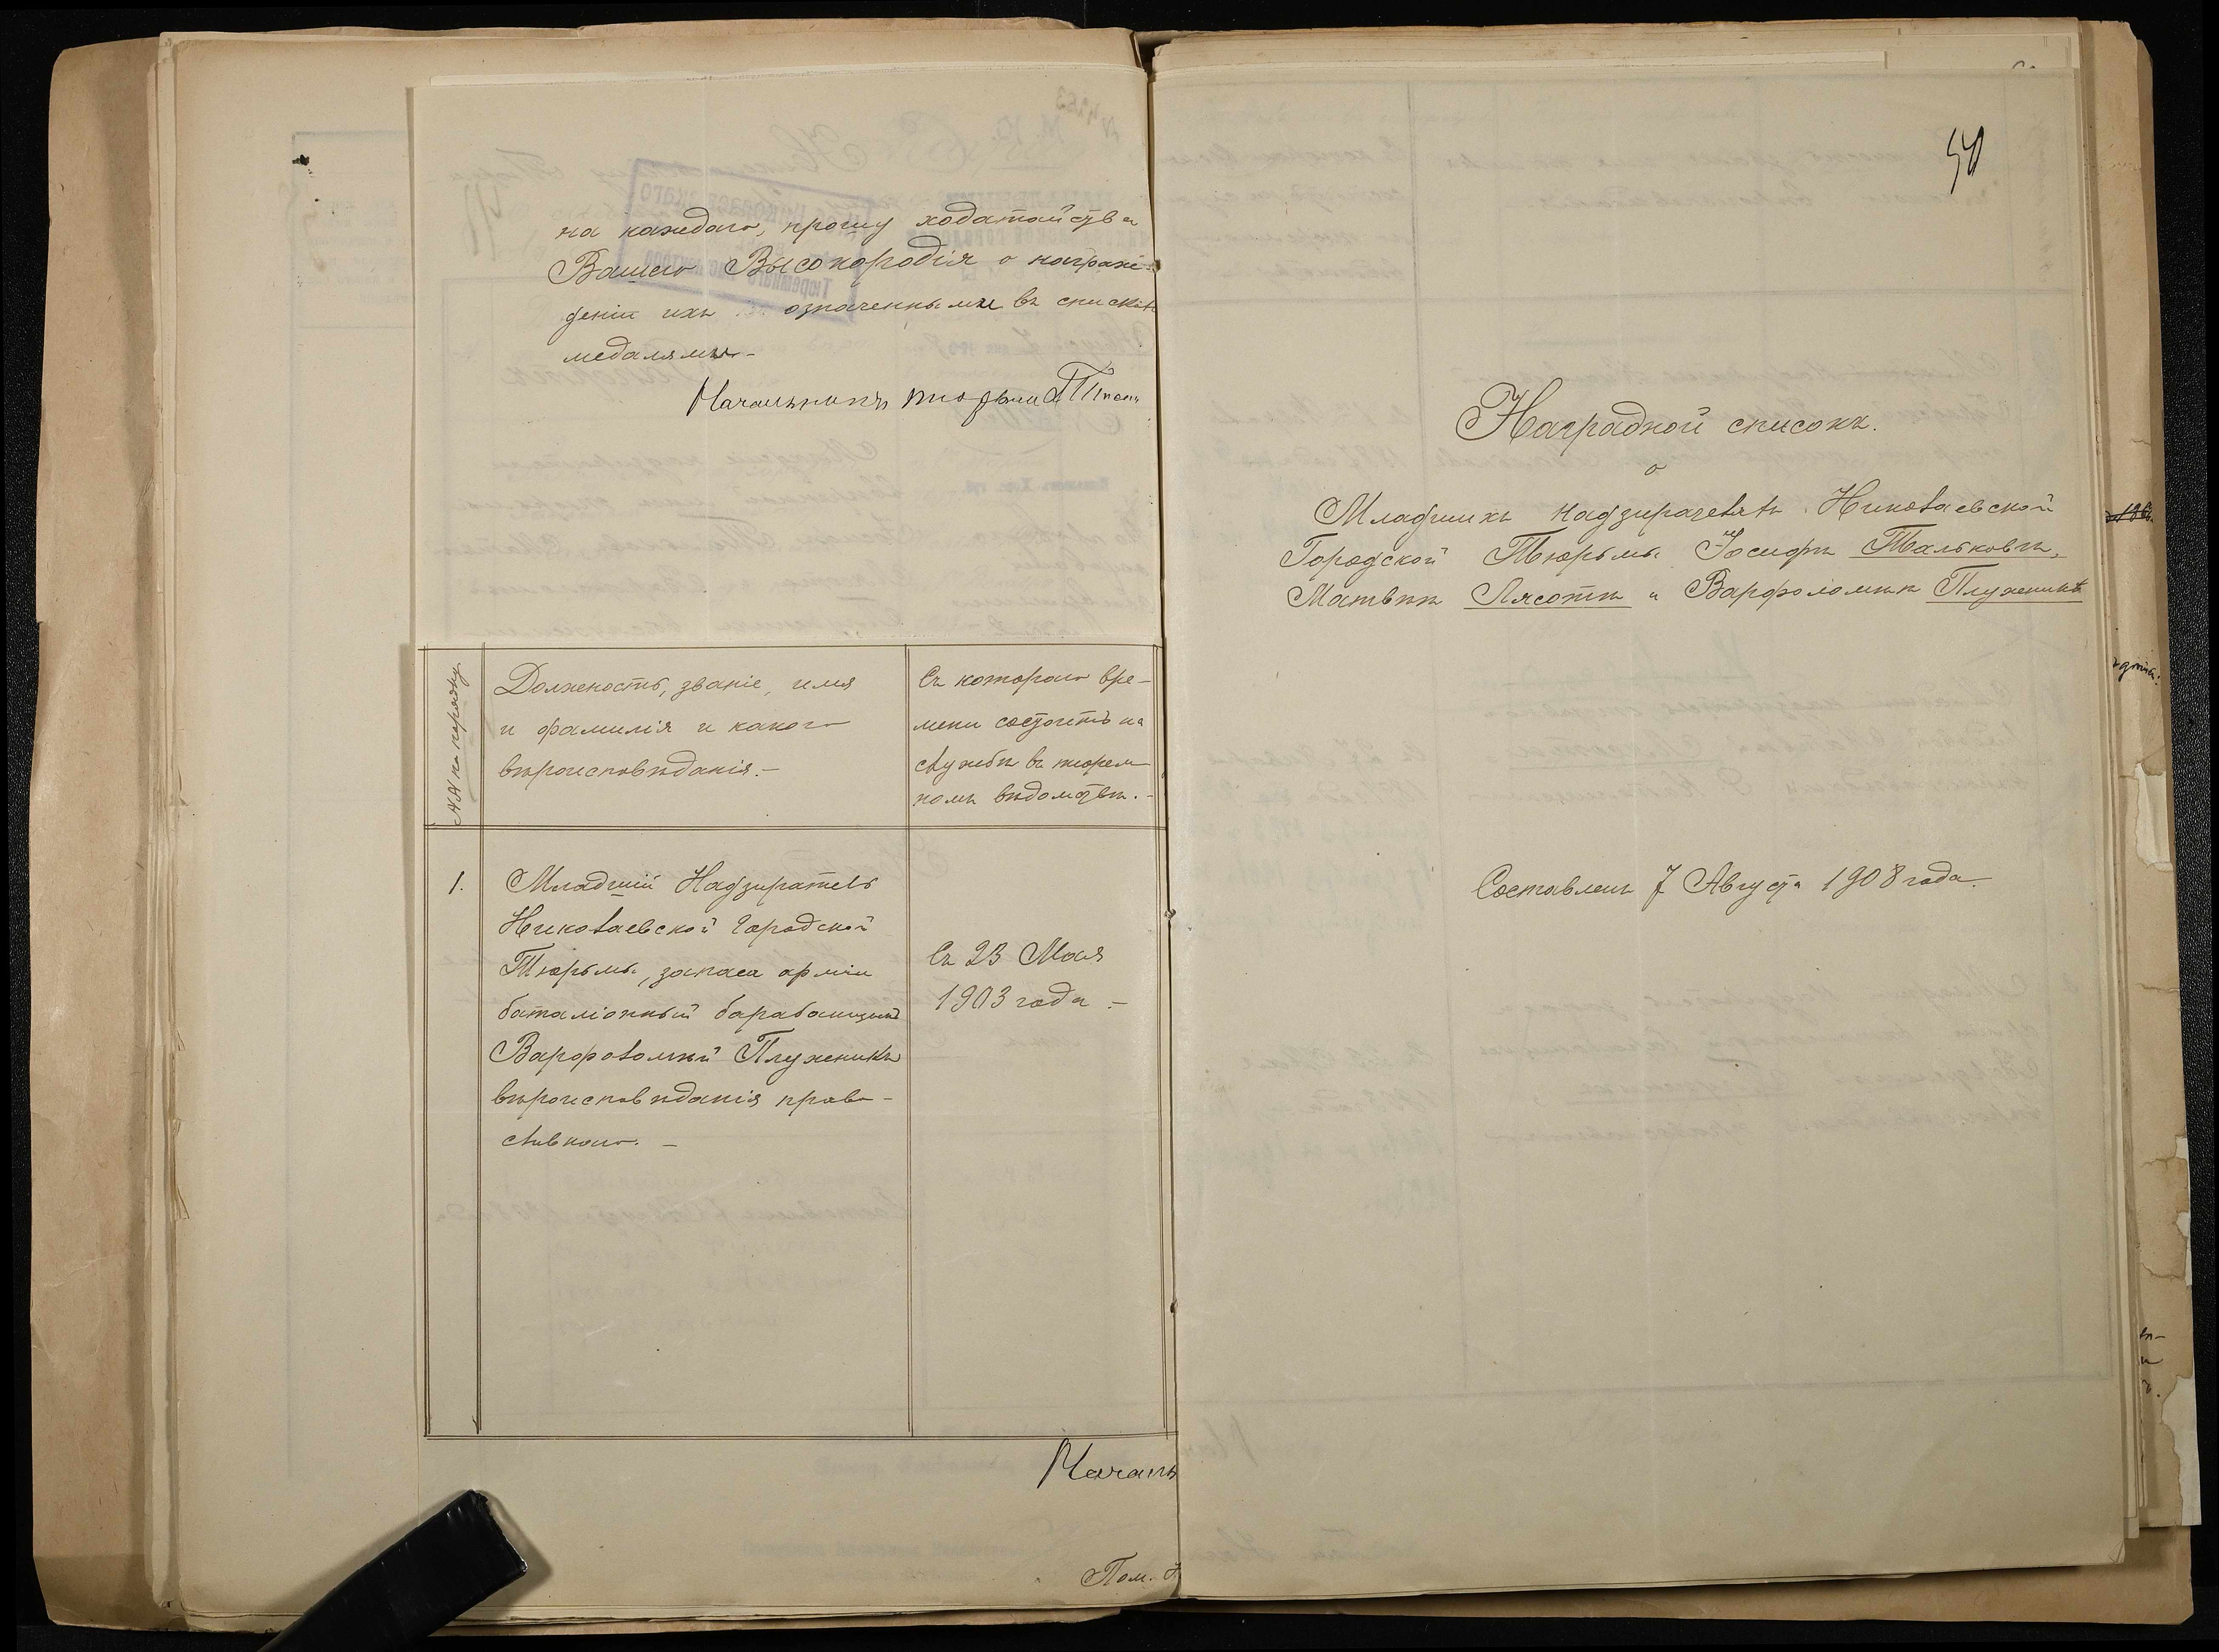 на каждаго, прошу ходатайства
Вашего Высокородія о награж-
деніи ихъ означенными въ спискѣ
медалями.-
Начальникъ тюрьмы
№№ по порядку
Должность, званіе, имя
и фамилія и какого
вѣроисповѣданія.-
Съ котораго вре-
мени состоитъ на
службѣ въ тюрем-
номъ вѣдомствѣ.-
1.
Младшій Надзиратель
Николаевской Городской
Тюрьмы, запаса арміи
баталіонный барабанщикъ
Варфоломѣй Плуженикъ
вѣроисповѣданія право-
славнаго.-
Съ 23 Мая
1903 года.-
Началь
Пом.
50
Наградной списокъ.
о
Младшихъ надзирателяхъ Николаевской
Городской Тюрьмы Іосифѣ Тальковѣ,
Матвѣѣ Лясотѣ и Варфоломѣѣ Плуженикѣ
Составленъ 7 Августа 1908 года.